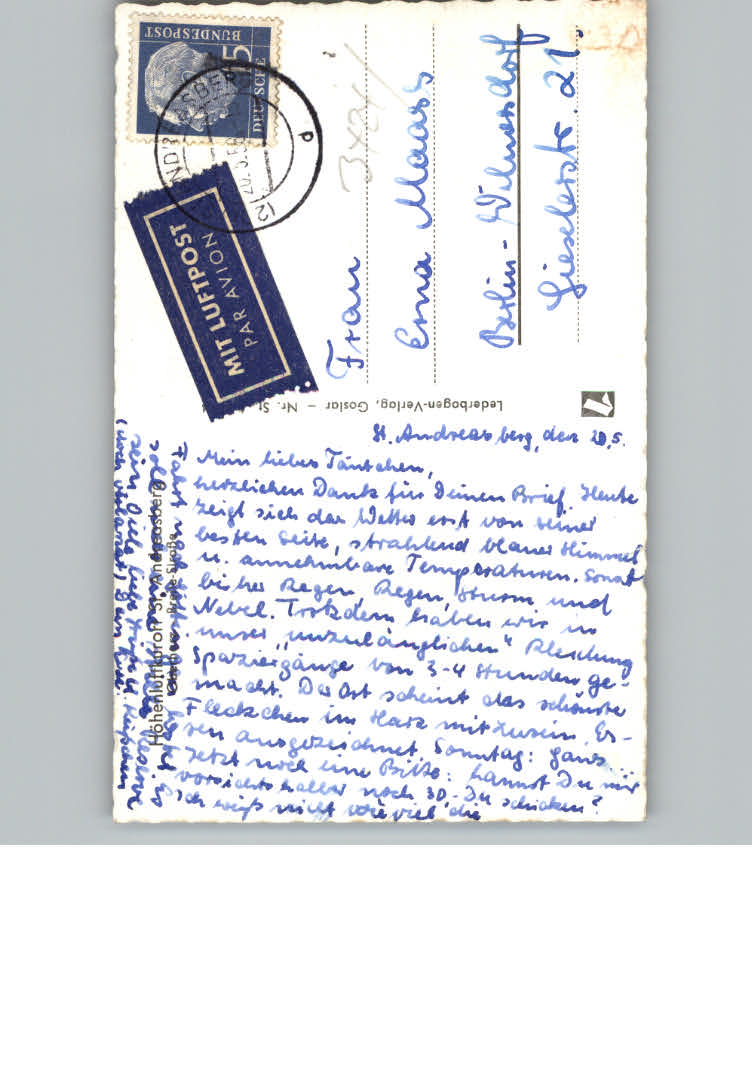 DEUTSCHE
BUNDESPOST
15
MIT LUFTPOST
PAR AVION
Frau
Erna Maass
Berlin-Wilmersdorf
Gieselerstr. 21.
Lederbogen-Verlag, Goslar – Nr. St.
Höhenluftkurort St. Andreasberg
Breite Straße
St. Andreasberg, den 20.5.
Mein liebes Täntchen,
herzlichen Dank für Deinen Brief. Heute
zeigt sich das Wetter erst von seiner
besten Seite, strahlend blauer Himmel
u. annehmbare Temperaturen. Sonst
bisher Regen, Regen, Sturm und
Nebel. Trotzdem haben wir in
unser „unzulänglichen" Kleidung
Spaziergänge von 3-4 Stunden ge-
macht. Der Ort scheint das schönste
Fleckchen im Harz mit zu sein. Es-
sen ausgezeichnet, Sonntag: Gans.
Jetzt noch eine Bitte: kannst Du mir
vorsichtshalber noch 30.- DM schicken?
Ich weiß nicht wie viel die
Fahrt nach kostet. Es
soll nur eine Reserve
sein. Viele liebe